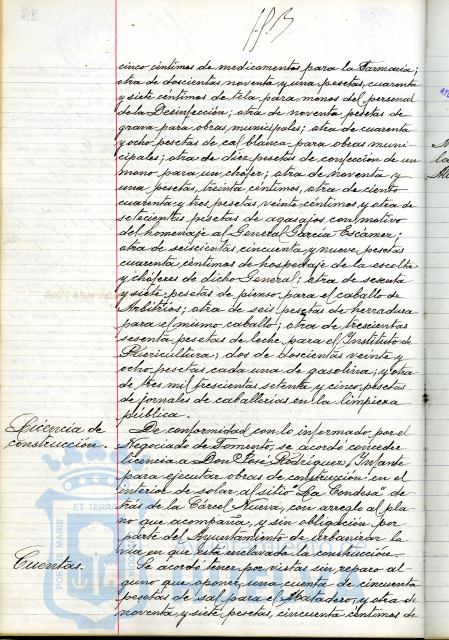 cinco céntimos de medicamentos para la Farmacia;
otra de doscientas noventa y una pesetas, cuarenta
y siete céntimos de tela para monos del personal
de la Desinfección; otra de noventa pesetas de
grava para obras municipales; otra de cuarenta
y ocho pesetas de cal blanca para obras muni-
cipales; otra de diez pesetas de confección de un
mono para un chófer; otra de noventa y
una pesetas, treinta céntimos, otra de ciento
cuarenta y tres pesetas veinte céntimos y otra de
setecientas pesetas de agasajos con motivo
del homenaje al General García Escámez;
otra de seiscientas cincuenta y nueve pesetas
cuarenta céntimos de hospedaje de la escolta
y chóferes de dicho General; otra de sesenta
y siete pesetas de pienso para el caballo de
Arbitrios; otra de seis pesetas de herradura
para el mismo caballo; otra de trescientas
sesenta pesetas de leche para el Instituto de
Puericultura; dos de doscientas veinte y
ocho pesetas cada una de gasolina; y otra
de tres mil trescientas setenta y cinco pesetas
de jornales de caballerías en la limpieza
pública.
Licencia de
construcción.
De conformidad con lo informado por el
Negociado de Fomento, se acordó conceder
licencia a Don José Rodríguez Infante
para ejecutar obras de construcción en el
interior de solar al sitio "La Condesa" de-
trás de la Cárcel Nueva, con arreglo al pla-
no que acompaña, y sin obligación por
parte del Ayuntamiento de urbanizar la
vía en que está enclavada la construcción.
Cuentas.
Se acordó tener por vistas sin reparo al-
guno que oponer, una cuenta de cincuenta
pesetas de sal para el Matadero, y otra de
noventa y siete pesetas, cincuenta céntimos de
ET TERRA
PORTUS MARIS